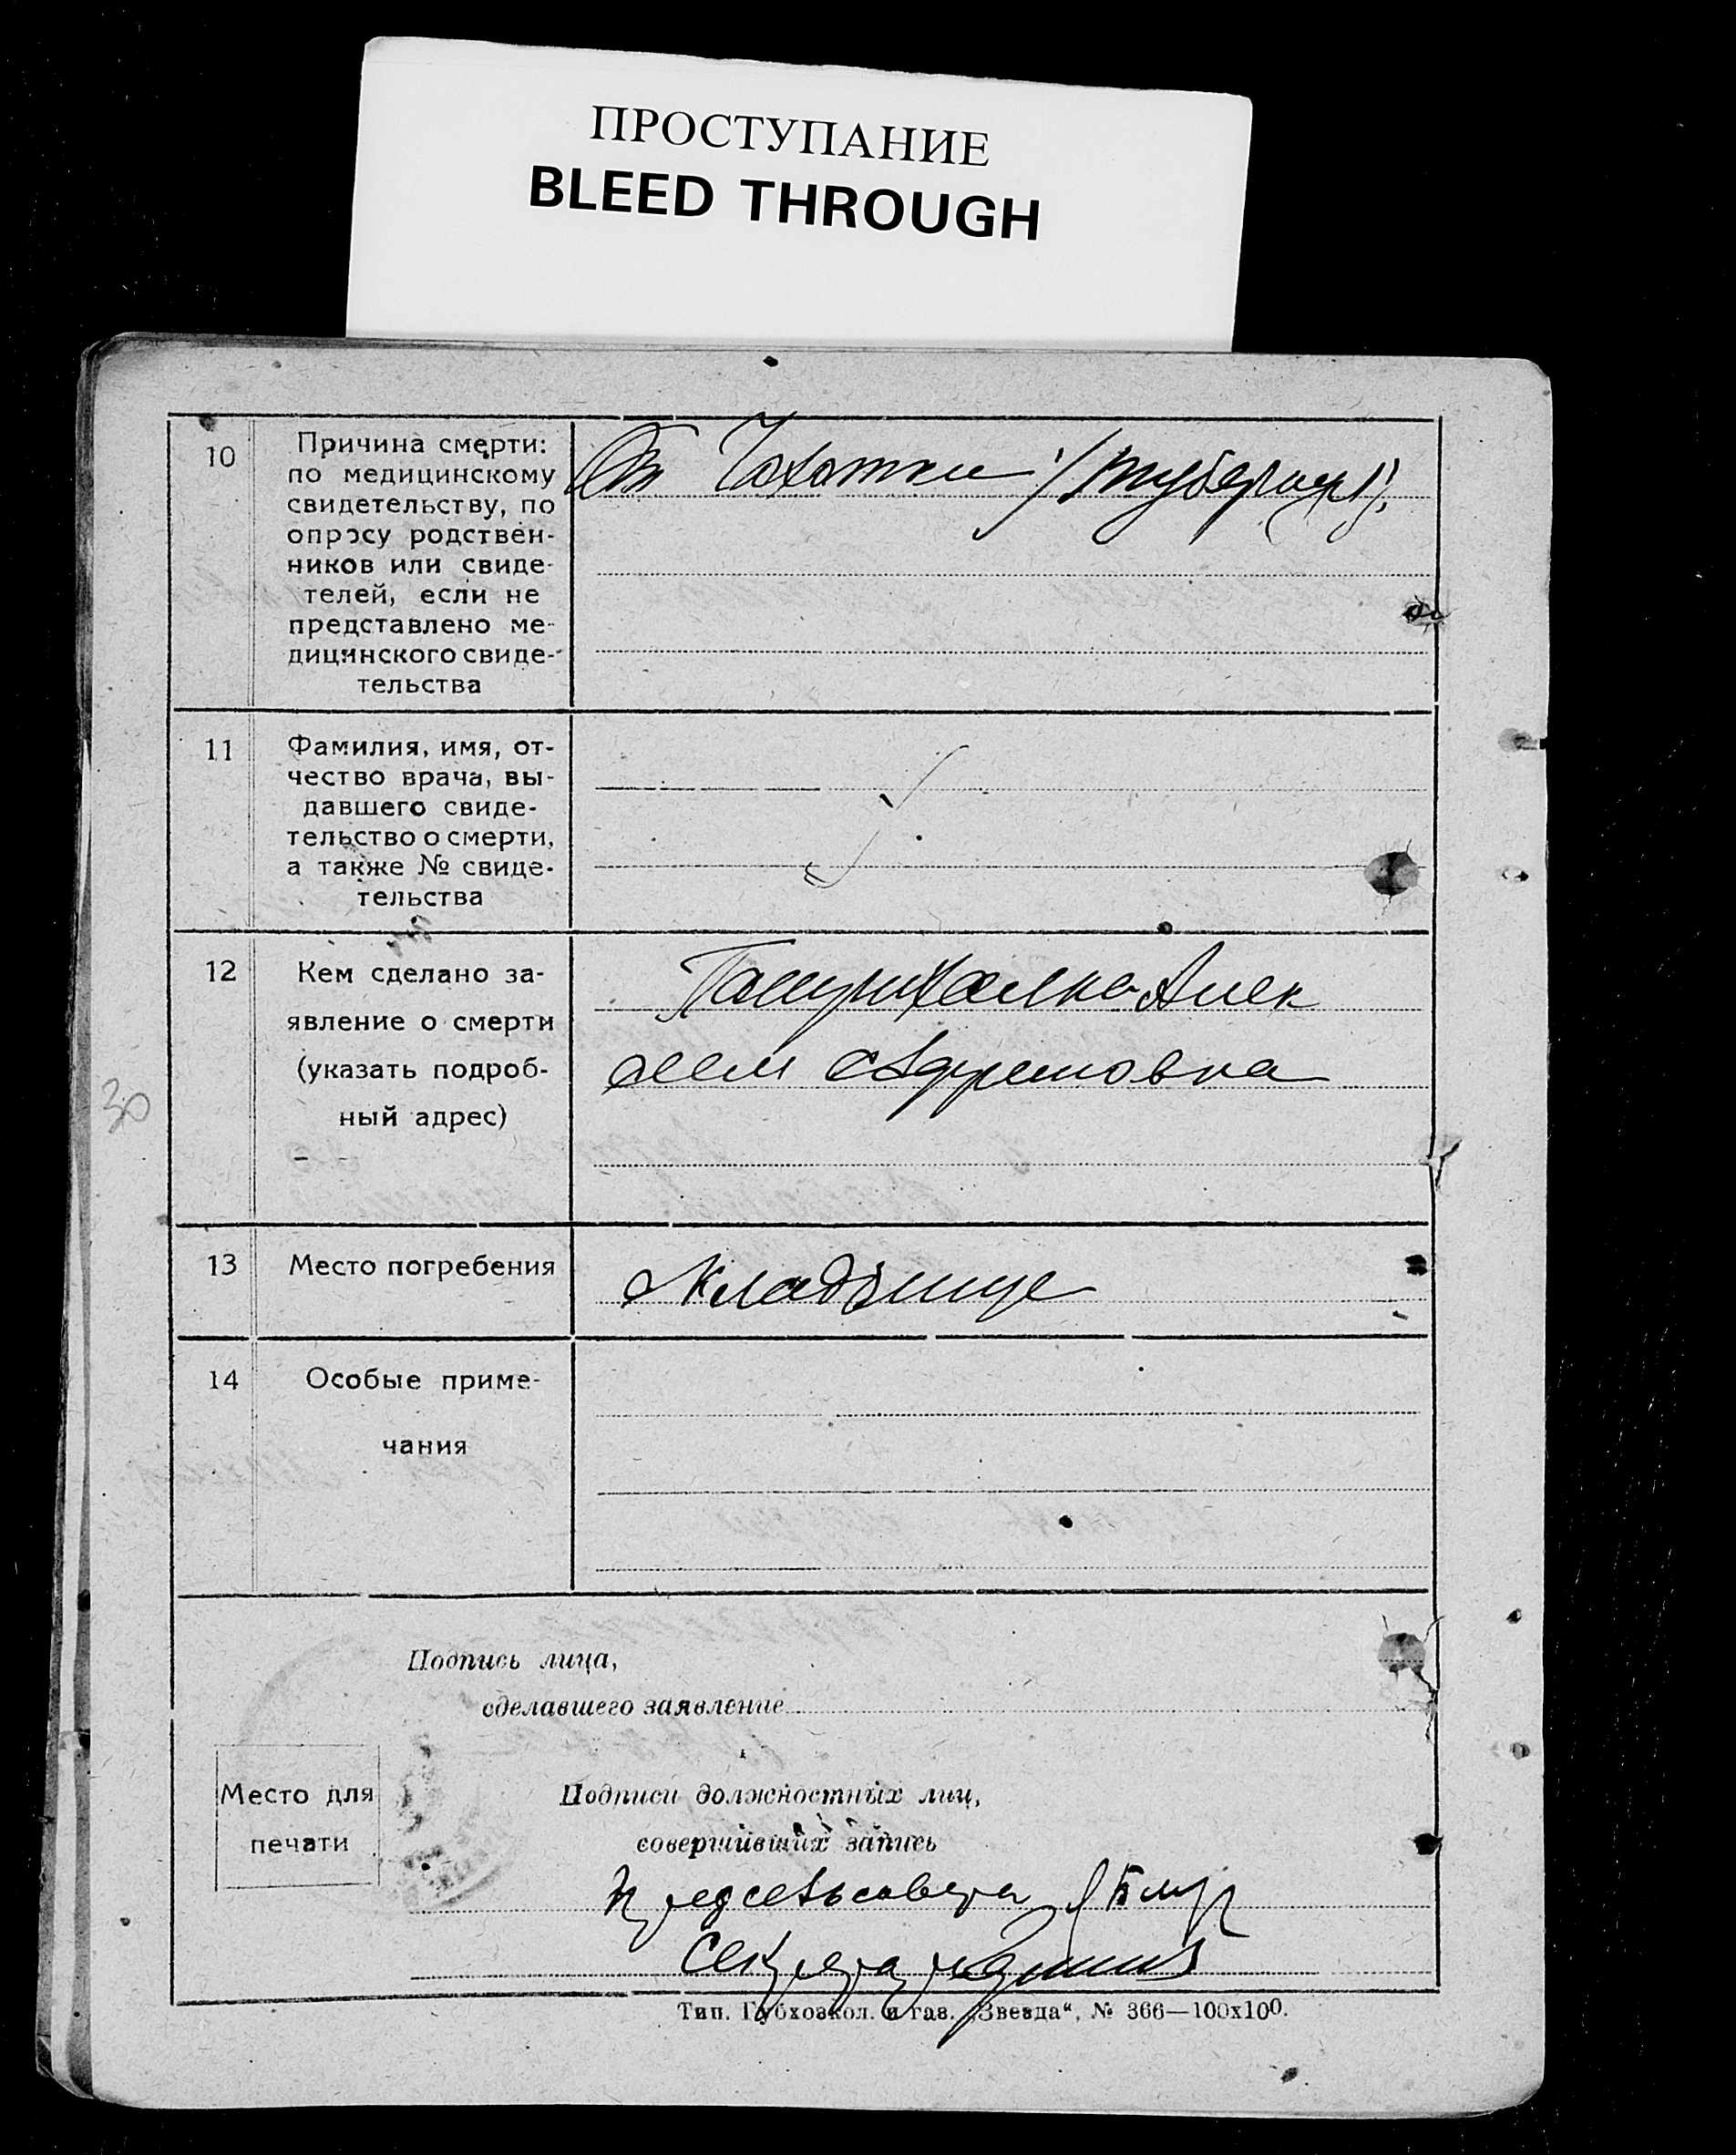 ПРОСТУПАНИЕ
BLEED THROUGH
10
Причина смерти:
по медицинскому
свидетельству, по
опросу родствен-
ников или свиде-
телей, если не
представлено ме-
дицинского свиде-
тельства
От Чахотки /туберкул/
11
Фамилия, имя, от-
чество врача, вы-
давшего свиде-
тельство о смерти,
а также № свиде-
тельства
12
Кем сделано за-
явление о смерти
(указать подроб-
ный адрес)
Алек
13
Место погребения
Кладбище
14
Особые приме-
чания
30
Подпись лица,
сделавшего заявление
Место для
печати
Подписи должностных лиц,
совершивших запись
Предсельсовета
Секретарь
Тип. Губхозкол. и газ. „Звезда“, № 366—100х100.